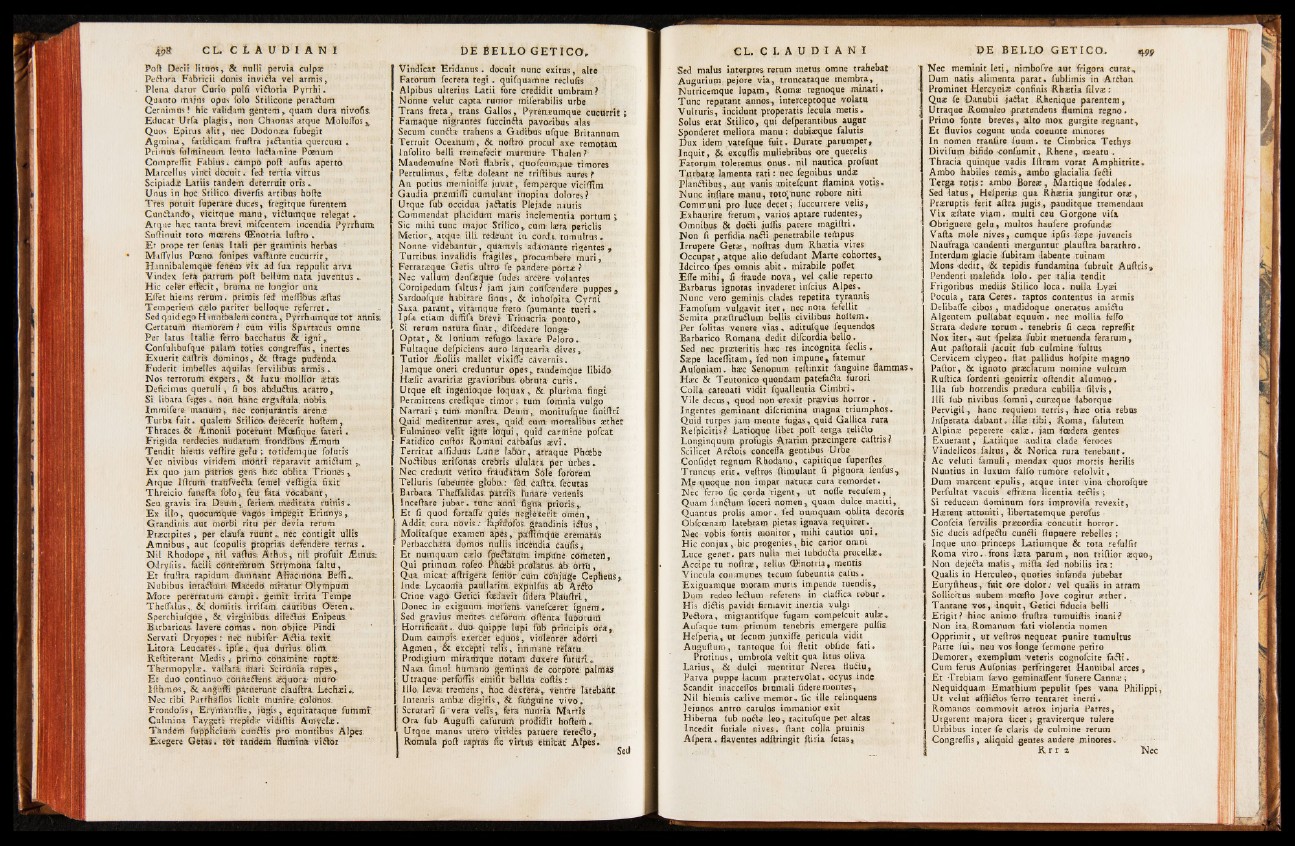 498 CL. CLAUDIANI
Post Decii lituos, & nulli pervia culpæ
Pectora Fabricii donis invicta vel armis,
Plena datur Curio pulsi victoria Pyrrhi.
Quanto majus opus solo Stilicone peractum
Cernimus! hic validam gentem, quam dura nivosis
Educat Ursa plagis, non Chaonas atque Molossos,
Quos Epirus alit, nec Dodonæa subegit
Agmina, fatidicam frustra jactantia quercum.
Primus fulmineum lento luctamine Pœnum
Compressit Fabius. campo post ausus aperto
Marcellus vinci docuit. sed tertia virtus
Scipiadæ Latiis tandem deterruit oris.
Unus in hoc Stilico diversis artibus hoste
Tres potuit superare duces, fregitque furentem
Cunctando, vicitque manu, victumque relegat.
Atque hæc tanta brevi miscentem incendia Pyrrhum
Sustinuit toto mœrens Œnotria lustro.
Et prope ter senas Itali per graminis herbas
Massylus Pœno sonipes vastante cucurrit,
Hannibalemque senem vix ad sua reppulit arva
Vindex sera patrum post bellum nata juventus.
Hic celer effecit, bruma ne longior una
Esset hiems rerum. primis sed messibus æstas
Temperiem cælo pariter belloque referret.
Sed quid ego Hannibalem contra, Pyrrhumque tot annis
Certatum memorem? cum vilis Spartacus omne
Per latus Italiæ ferro bacchatus & igni,
Consulibusque palam toties congressus, inertes
Exuerit castris dominos, & strage pudenda
Foderit imbelles aquilas servilibus armis.
Nos terrorum expers, & luxu mollior ætas
Deficimus queruli, si bos abductus aratro,
Si libata seges. non hanc ergastula nobis
Immisere manum, nec conjurantis arenæ
Turba fuit. qualem Stilico dejecerit hostem,
Thraces & Æmonii poterunt Mœsique fateri.
Frigida terdecies nudatum frondibus Æmum
Tendit hiems vestire gelu; totidemque solutis
Ver nivibus viridem monti reparavit amictum,
Ex quo jam patrios gens hæc oblita Triones,
Atque Istrum transvecta semel vestigia fixit
Threicio funesta solo, seu fata vocabant,
Seu gravis ira Deum, seriem meditata ruinis.
Ex illo, quocumque vagos impegit Erinnys,
Grandinis aut morbi ritu per devia rerum
Præcipites, per clausa ruunt. nec contigit ullis
Amnibus, aut scopulis proprias defendere terras.
Nil Rhodope, nil vastus Athos, nil profuit Æmus
Odrysiis. facili contemtum Strymona saltu,
Et frustra rapidum damnant Aliacmona Bessi.
Nubibus intactum Macedo miratur Olympum
More pererratum campi. gemit irrita Tempe
Thessalus, & domitis irrisam cautibus Oeten.
Sperchiusque, & virginibus dilectus Enipeus
Barbaricas lavere comas. non objice Pindi
Servati Dryopes: nec nubifer Actia texit
Litora Leucates. ipsæ, qua durius olim
Restiterant Medis, primo conamine ruptæ
Thermopylæ. vallata mari Scironia rupes,
Et duo continuo connectens æquora muro
Isthmos, & angusti patuerunt claustra Lechæi.
Nec tibi Parrhasios licuit munire colonos
Frondosis, Erymanthe, jugis, equitataque summi
Culmina Taygeti trepidæ vidistis Amyclæ.
Tandem supplicium cunctis pro montibus Alpes
Exegere Getas. tot tandem flumina victor
DE BELLO GETICO.
Vindicat Eridanus. docuit nunc exitus, alte
Fatorum secreta tegi. quisquamne reclusis
Alpibus ulterius Latii fore credidit umbram?
Nonne velut capta rumor miserabilis urbe
Trans freta, trans Gallos, Pyrenæumque cucurrit;
Famaque nigrantes succincta pavoribus alas
Secum cuncta trahens a Gadibus usque Britannum
Terruit Oceanum, & nostro procul axe remotam
Insolito belli tremefecit murmure Thulen?
Mandemusne Noti flabris, quoscumque timores
Pertulimus, festæ doleant ne tristibus aures?
An potius meminisse juvat, semperque vicissim
Gaudia præmissi cumulant inopina dolores?
Utque sub occidua jactatis Plejade nautis
Commendat placidum maris inclementia portum;
Sic mihi tunc major Stilico, cum læta periclis
Metior, atque illi redeunt in corda tumultus.
Nonne videbantur, quamvis adamante rigentes,
Turribus invalidis fragiles, procumbere muri,
Ferratæque Getis ultro se pandere portæ?
Nec vallum densæque sudes arcere volantes
Cornipedum saltus? jam jam conscendere puppes,
Sardoosque habitare sinus, & inhospita Cyrni
Saxa parant, vitamque freto spumante tueri.
Ipsa etiam diffisa brevi Trinacria ponto,
Si rerum natura sinat, discedere longe
Optat, & Ionium refugo laxare Peloro.
Fultaque despiciens auro laquearia dives,
Tutior Æoliis mallet vixisse cavernis.
Jamque oneri creduntur opes, tandemque libido
Hæsit avaritiæ gravioribus obruta curis.
Utque est ingenioque loquax, & plurima fingi
Permittens credique timor: tum somnia vulgo
Narrari; tum monstra Deum, monitusque sinistri
Quid meditentur aves, quid cum mortalibus æther
Fulmineo velit igne loqui, quid carmine poscat
Fatidico custos Romani carbasus ævi.
Territat assiduus Lunæ labor, atraque Phœbe
Noctibus ærisonas crebris ululata per urbes.
Nec credunt vetito fraudatam Sole sororem
Telluris subeunte globo: sed castra secutas
Barbara Thessalidas patriis lunare venenis
Incestare jubar. tunc anni signa prioris,
Et si quod fortasse quies neglexerit omen,
Addit cura novis: lapidosos grandinis ictus,
Molitasque examen apes, passimque crematas
Perbacchata domos nullis incendia causis,
Et numquam cælo spectatum impune cometen,
Qui primum roseo Phœbi prolatus ab ortu,
Qua micat astrigera senior cum conjuge Cepheus,
Inde Lycaonia paullatim expulsus ab Arcto
Crine vago Getici fœdavit sidera Plaustri,
Donec in exiguum moriens vanesceret ignem.
Sed gravius mentes cæsorum ostenta luporum
Horrificant. duo quippe lupi sub principis ora,
Dum campis exercet equos, violenter adorti
Agmen, & excepti telis, immane refatu
Prodigium miramque notam duxere futuri.
Nam simul humano geminas de corpore palmas
Utraque perfossis emisit bellua costis:
Illo læva tremens, hoc dextera, ventre latebant
Intentis ambæ digitis, & sanguine vivo.
Scrutari si vera velis, fera nuntia Martis
Ora sub Augusti casurum prodidit hostem.
Utque manus utero virides patuere retecto,
Romula post raptas sic virtus emicat Alpes.
Sed
CL. CLAUDIANI
Sed malus interpres rerum metus omne trahebat
Augurium pejore via, truncataque membra,
Nutricemque lupam, Romæ regnoque minari.
Tunc reputant annos, interceptoque volatu
Vulturis, incidunt properatis secula metis.
Solus erat Stilico, qui desperantibus augur
Sponderet meliora manu: dubiæque salutis
Dux idem vatesque fuit. Durate parumper,
Inquit, & excussis muliebribus ore querelis
Fatorum toleremus onus. nil nautica prosunt
Turbatæ lamenta rati: nec segnibus undæ
Planctibus, aut vanis mitescunt flamina votis.
Nunc instare manu, toto nunc robore niti
Communi pro luce decet; succurrere velis,
Exhaurire fretum, varios aptare rudentes,
Omnibus & docti jussis parere magistri.
Non si perfidia nacti penetrabile tempus
Irrupere Getæ, nostras dum Rhætia vires
Occupat, atque alio desudant Marte cohortes,
Idcirco spes omnis abit. mirabile posset
Esse mihi, si fraude nova, vel calle reperto
Barbarus ignotas invaderet inscius Alpes.
Nunc vero geminis clades repetita tyrannis
Famosum vulgavit iter. nec nota fefellit
Semita præstructum bellis civilibus hostem.
Per solitas venere vias. aditusque sequendos
Barbarico Romana dedit discordia bello.
Sed nec præteritis hæc res incognita seclis.
Sæpe lacessitam, sed non impune, fatemur
Ausoniam. hæc Senonum restinxit sanguine flammas.
Hæc & Teutonico quondam patefacta furori
Colla catenati vidit squallentia Cimbri.
Vile decus, quod non erexit prævius horror.
Ingentes geminant discrimina magna triumphos.
Quid turpes jam mente fugas, quid Gallica rura
Respicitis? Latioque libet post terga relicto
Longinquum profugis Ararim præcingere castris?
Scilicet Arctois concessa gentibus Urbe
Considet regnum Rhodano, capitique superstes
Truncus erit. vestros stimulant si pignora sensus,
Me quoque non impar naturæ cura remordet.
Nec ferro sic corda rigent, ut nosse recusem,
Quam sanctum soceri nomen, quam dulce mariti,
Quantus prolis amor. sed numquam oblita decoris
Obscœnam latebram pietas ignava requiret.
Nec vobis fortis monitor, mihi cautior uni.
Hic conjux, hic progenies, hic carior omni
Luce gener. pars nulla mei subducta procellæ.
Accipe tu nostræ, tellus Œnotria, mentis
Vincula communes tecum subeuntia casus.
Exiguamque moram muris impende tuendis,
Dum redeo lectum referens in classica robur.
His dictis pavidi firmavit inertia vulgi
Pectora, migrantisque fugam compescuit aulæ.
Ausaque tum primum tenebris emergere pulsis
Hesperia, ut secum junxisse pericula vidit
Augustum, tantoque sui stetit obside fati.
Protinus, umbrosa vestit qua litus oliva
Larius, & dulci mentitur Nerea fluctu,
Parva puppe lacum prætervolat. ocyus inde
Scandit inaccessos brumali sidere montes,
Nil hiemis cælive memor. sic ille relinquens
Jejunos antro catulos immanior exit
Hiberna sub nocte leo, tacitusque per altas
Incedit furiale nives. stant colla pruinis
Aspera. flaventes adstringit stiria setas,
DE BELLO GETICO. 499
Nec meminit leti, nimbosve aut frigora curat,
Dum natis alimenta parat. sublimis in Arcton
Prominet Hercyniæ confinis Rhætia silvæ:
Quæ se Danubii jactat Rhenique parentem,
Utraque Romuleo prætendens flumina regno.
Primo fonte breves, alto mox gurgite regnant,
Et fluvios cogunt unda coeunte minores
In nomen transire suum. te Cimbrica Tethys
Divisum bifido consumit, Rhene, meatu.
Thracia quinque vadis Istrum vorat Amphitrite.
Ambo habiles remis, ambo glacialia secti
Terga rotis: ambo Boreæ, Martique sodales.
Sed latus, Hesperiæ qua Rhætia jungitur oræ,
Præruptis ferit astra jugis, panditque tremendam
Vix æstate viam. multi ceu Gorgone visa
Obriguere gelu, multos hausere profundæ
Vasta mole nives, cumque ipsis sæpe juvencis
Naufraga candenti merguntur plaustra barathro.
Interdum glacie subitam labente ruinam
Mons dedit, & tepidis fundamina subruit Austris,
Pendenti malefida solo. per talia tendit
Frigoribus mediis Stilico loca. nulla Lyæi
Pocula, rara Ceres. raptos contentus in armis
Delibasse cibos, madidoque oneratus amictu
Algentem pullabat equum. nec mollia fesso
Strata dedere torum. tenebris si cæca repressit
Nox iter, aut spelæa subit metuenda ferarum,
Aut pastorali jacuit sub culmine fultus
Cervicem clypeo. stat pallidus hospite magno
Pastor, & ignoto præclarum nomine vultum
Rustica sordenti genitrix ostendit alumno.
Illa sub horrendis prædura cubilia silvis,
Illi sub nivibus somni, curæque laborque
Pervigil, hanc requiem terris, hæc otia rebus
Insperata dabant. illæ tibi, Roma, salutem
Alpinæ peperere calæ. jam fœdera gentes
Exuerant, Latiique audita clade feroces
Vindelicos saltus, & Norica rura tenebant.
Ac veluti famuli, mendax quos mortis herilis
Nuntius in luxum falso rumore resolvit,
Dum marcent epulis, atque inter vina chorosque
Persultat vacuis effræna licentia tectis;
Si reducem dominum fors improvisa revexit,
Hærent attoniti, libertatemque perosus
Conscia servilis præcordia concutit horror.
Sic ducis adspectu cuncti stupuere rebelles;
Inque uno princeps Latiumque & tota refulsit
Roma viro. frons læta parum, non tristior æquo,
Non dejecta malis, mista sed nobilis ira:
Qualis in Herculeo, quoties infanda jubebat
Eurystheus, fuit ore dolor. vel qualis in atram
Sollicitus nubem mœsto Jove cogitur æther.
Tantane vos, inquit, Getici fiducia belli
Erigit? hinc animo frustra tumuistis inani?
Non ita Romanum fati violentia nomen
Opprimit, ut vestros nequeat punire tumultus
Parte sui. neu vos longe sermone petito
Demorer, exemplum veteris cognoscite facti.
Cum ferus Ausonias perfringeret Hannibal arces,
Et Trebiam sævo geminassent funere Cannæ;
Nequidquam Emathium pepulit spes vana Philippi,
Ut velut afflictos ferro tentaret inerti.
Romanos commovit atrox injuria Patres,
Urgerent majora licet; graviterque tulere
Urbibus inter se claris de culmine rerum
Congressis, aliquid gentes audere minores.
Rrr 2 Nec